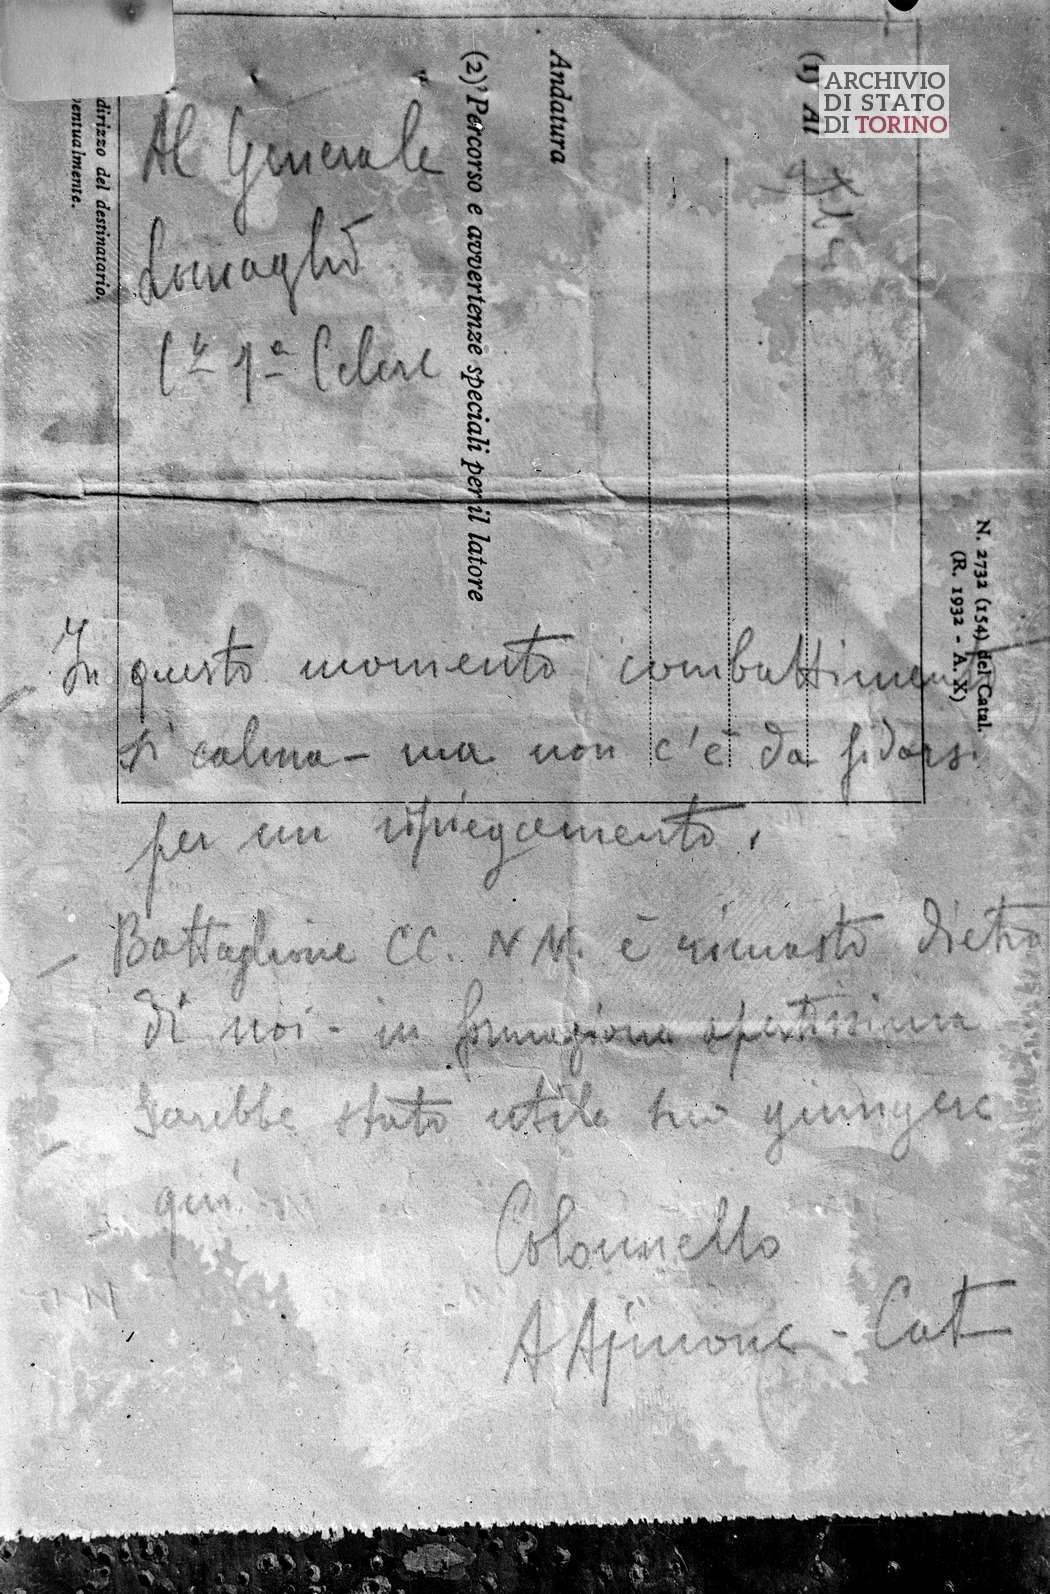 ARCHIVIO
DI STATO
DI TORINO
(1) Al
Andatura
(2) Percorso e avvertenze speciali per il latore
dirizzo del destinatario.
entualmente.
N. 2732 (154) del Catal.
(R. 1932 - A. X)
Al Generale
Lomaglio
C.te 1a Celere
In questo momento combattimento
si calma - ma non c'è da fidarsi
per un ripiegamento.
Battaglione CC. NN. è rimasto dietro
di noi - in formazione apertissima
Sarebbe stato utile suo giungere
qui.
Colonnello
A Ajmone - Cat